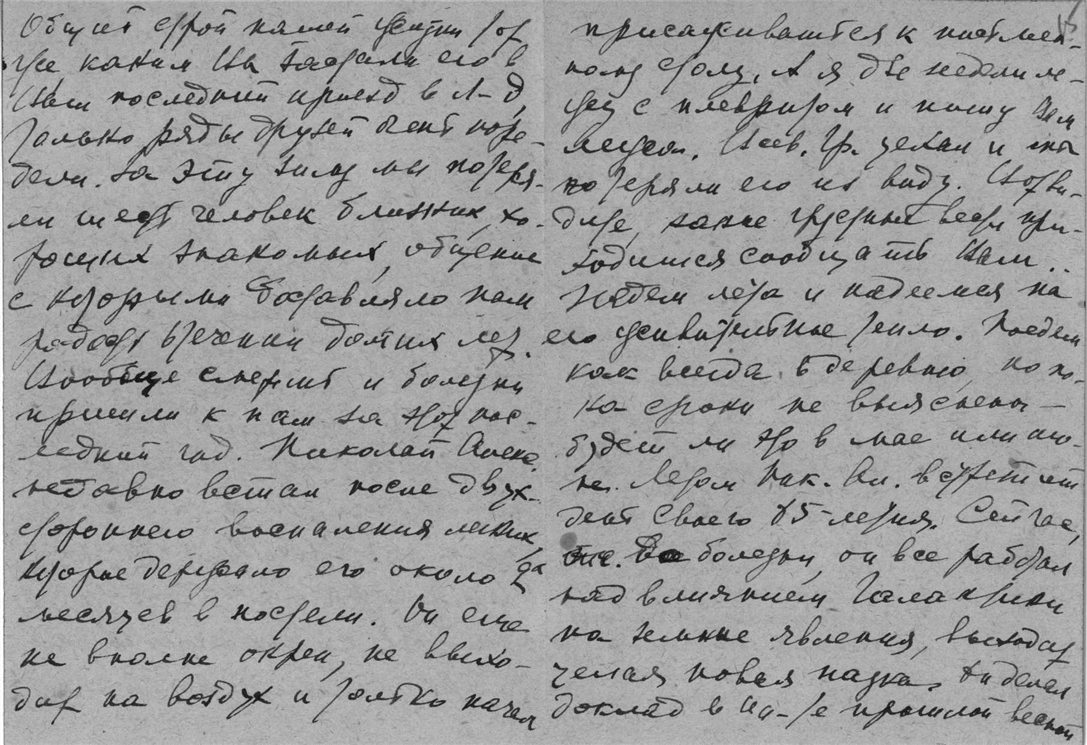 Общий строй нашей жизни тот
же, каким Вы застали его в
Ваш последний приезд в Л-д,
только ряды друзей поре-
дели. За эту зиму мы потеря-
ли шесть человек близких, хо-
роших знакомых, общение
с которыми доставляло нам
радость в течении долгих лет.
Вообще смерть и болезни
пришли к нам за этот пос-
ледний год. Николай Алекс.
недавно встал после двух-
стороннего воспаления легких,
которое держало его около 2х
месяцев в постели. Он еще
не вполне окреп, не выхо-
дит на воздух и только начал
15
присаживаться к письмен-
ному столу. А я две недели ле-
жу с плевритом и пишу Вам
лежа. уехал и мы
потеряли его из виду. Вот ви-
дите, какие грустные вести при-
ходится сообщать Вам..
Ждем лета и надеемся на
его живительное тепло. Поедем
как всегда в деревню, но по-
ка сроки не выяснены —
будет ли это в мае или ию-
не. Летом Ник. Ал. встретит
день своего 85-летия. Сейчас,
до болезни, он все работал
над влиянием Галактики
на земные явления, выходит
целая новая наука. Он делал
доклад в Ин-те прошлой весной